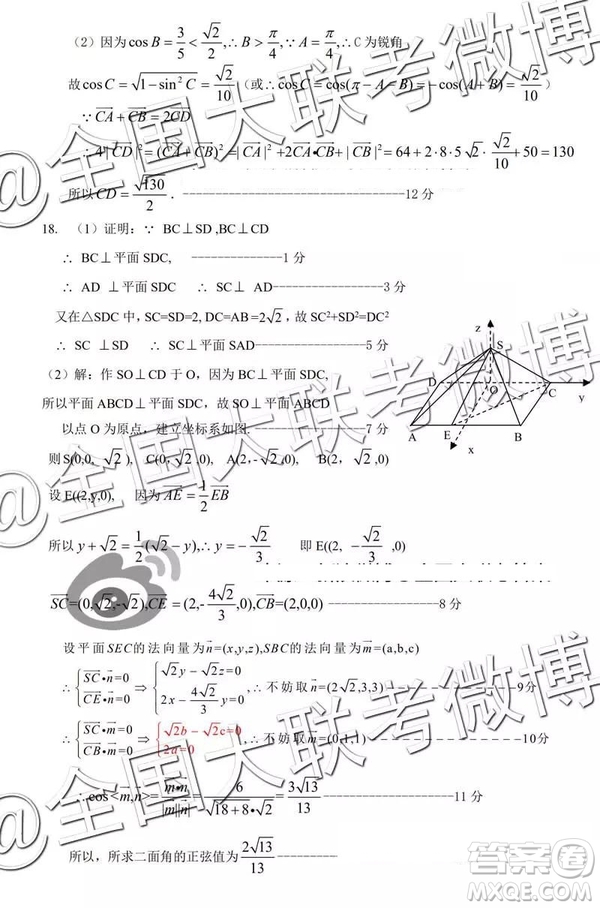 （2）因为cos B = 3/5 < √2/2, ∴ B > π/4, ∵ A = π/4, ∴ C 为锐角
故 cos C = √(1-sin² C) = √2/10 （或∴ cos C = cos(π - A - B) = -cos(A + B) = √2/10）
∵ CA + CB = 2CD
∴ 4|CD|² = (CA + CB)² = |CA|² + 2CA•CB + |CB|² = 64 + 2·8·5√2·√2/10 + 50 = 130
所以 CD = √130/2 . ------12 分
18. （1）证明：∵ BC⊥SD ,BC⊥CD
∴ BC⊥平面 SDC, ------1 分
∴ AD ⊥平面 SDC ∴ SC⊥ AD------3 分
又在△SDC 中, SC=SD=2, DC=AB=2√2, 故 SC²+SD²=DC²
∴ SC ⊥SD ∴ SC⊥平面 SAD------5 分
（2）解：作 SO⊥CD 于 O，因为 BC⊥平面 SDC,
所以平面 ABCD⊥平面 SDC，故 SO⊥平面 ABCD
以点 O 为原点，建立坐标系如图------7 分
则 S(0,0, √2 ), C(0, √2 ,0), A(2,-√2 ,0), B(2, √2 ,0)
设 E((2,y,0), 因为 AE = 1/2 EB
所以 y + √2 = 1/2(√2 - y), ∴ y = -√2/3 即 E((2, -√2/3 ,0)
SC=(0,√2,-√2),CE=(2,-4√2/3,0),CB=(2,0,0) ------8 分
设平面 SEC 的法向量为n=(x,y,z),SBC 的法向量为m=(a,b,c)
∴ {SC•n=0 CE•n=0 ⇒ {√2y - √2z=0 2x - 4√2/3 y=0, ∴ 不妨取n=(2√2,3,3)------9分
∴ {SC•m=0 CB•m=0 ⇒ {√2b - √2c=0 2a=0, ∴ 不妨取m=(0,1,1)------10分
∴ cos<m,n>= m•n/|m||n| = 6/(√(18+8)•√2) = 3√13/13 ------11 分
所以，所求二面角的正弦值为 2√13/13 ------
z
S
D
O
C
y
A
E
B
x
@全国大联考微博
@全国大联考微博
@全国大联考微博
答案卷
MXQE.COM